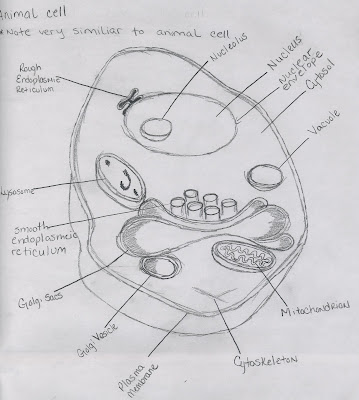 Animal cell
* Note very similiar to animal cell
Nucleolus
Nucleus
Nuclear
envelope
Cytosol
Rough
Endoplasmic
Reticulum
Vacuole
Lysosome
smooth
Endoplasmeic
reticulum
Golgi Sacs
Golgi Vesicle
Plasma
Membrane
Cytoskeleton
Mitochondrian